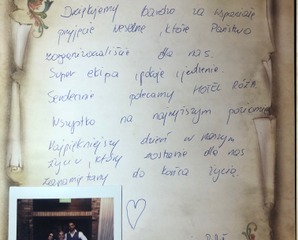 Dziękujemy bardzo za wspaniałe
przyjęcie weselne, które Państwo
zorganizowaliście dla nas.
Super ekipa i pyszne jedzenie.
Serdecznie polecamy HOTEL RÓŻA.
Wszystko na najwyższym poziomie.
Najpiękniejszy dzień w naszym
życiu, który zostanie dla nas
zapamiętany do końca życia.